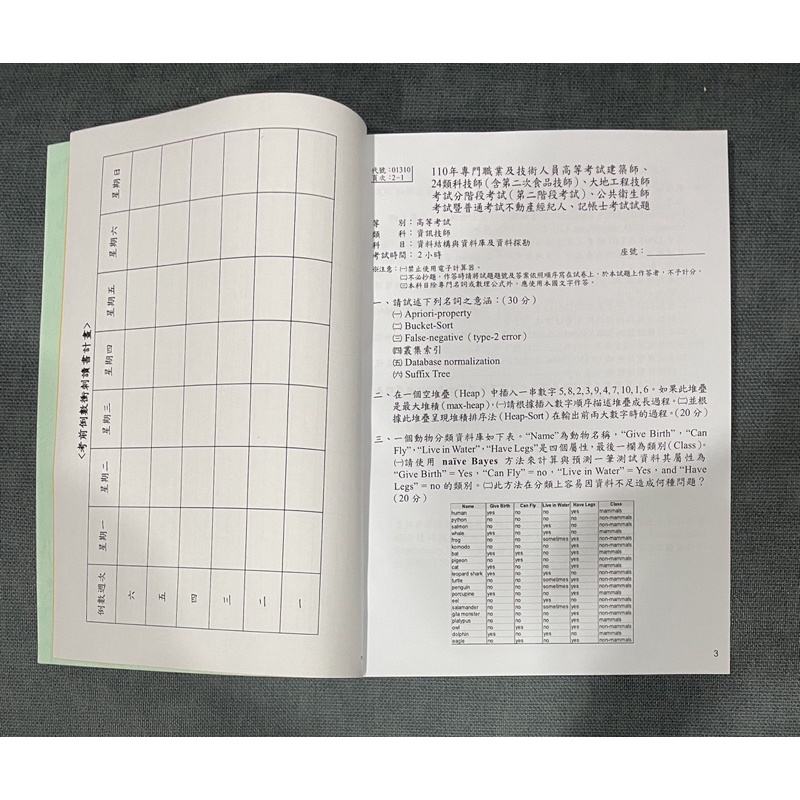 <考前倒數衝刺讀書計畫>
倒數週次 星期一 星期二 星期三 星期四 星期五 星期六 星期日
六
五
四
三
二
一
代號：01310
頁次：2-1
110年專門職業及技術人員高等考試建築師、
24類科技師（含第二次食品技師）、大地工程技師
考試分階段考試（第二階段考試）、公共衛生師
考試暨普通考試不動產經紀人、記帳士考試試題
等 別：高等考試
類 科：資訊技師
科 目：資料結構與資料庫及資料探勘
考試時間：2小時 座號：
※注意：㈠禁止使用電子計算器。
㈡不必抄題，作答時請將試題題號及答案依照順序寫在試卷上，於本試題上作答者，不予計分。
㈢本科目除專門名詞或數理公式外，應使用本國文字作答。
一、請試述下列名詞之意涵：（30分）
㈠ Apriori-property
㈡ Bucket-Sort
㈢ False-negative（type-2 error）
㈣叢集索引
㈤ Database normalization
㈥ Suffix Tree
二、在一個空堆疊（Heap）中插入一串數字 5, 8, 2, 3, 9, 4, 7, 10, 1, 6。如果此堆疊
是最大堆積（max-heap），㈠請根據插入數字順序描述堆疊成長過程。㈡並根
據此堆疊呈現堆積排序法（Heap-Sort）在輸出前兩大數字時的過程。（20分）
三、一個動物分類資料庫如下表。“Name”為動物名稱，“Give Birth”，“Can
Fly”，“Live in Water”，“Have Legs”是四個屬性，最後一欄為類別（Class）。
㈠請使用 naïve Bayes 方法來計算與預測一筆測試資料其屬性為
“Give Birth” = Yes，“Can Fly” = no，“Live in Water” = Yes，and “Have
Legs” = no 的類別。㈡此方法在分類上容易因資料不足造成何種問題？
（20分）
Name Give Birth Can Fly Live in Water Have Legs Class
human yes no no yes mammals
python no no no no non-mammals
salmon no no yes no non-mammals
whale yes no yes no mammals
frog no no sometimes yes non-mammals
komodo no no no yes non-mammals
bat yes yes no yes mammals
pigeon no yes no yes non-mammals
cat yes no no yes mammals
leopard shark yes no yes no non-mammals
turtle no no sometimes yes non-mammals
penguin no no sometimes yes non-mammals
porcupine yes no no yes mammals
eel no no yes no non-mammals
salamander no no sometimes yes non-mammals
gila monster no no no yes non-mammals
platypus no no no yes mammals
owl no yes no yes non-mammals
dolphin yes no yes no mammals
eagle no yes no yes non-mammals
3